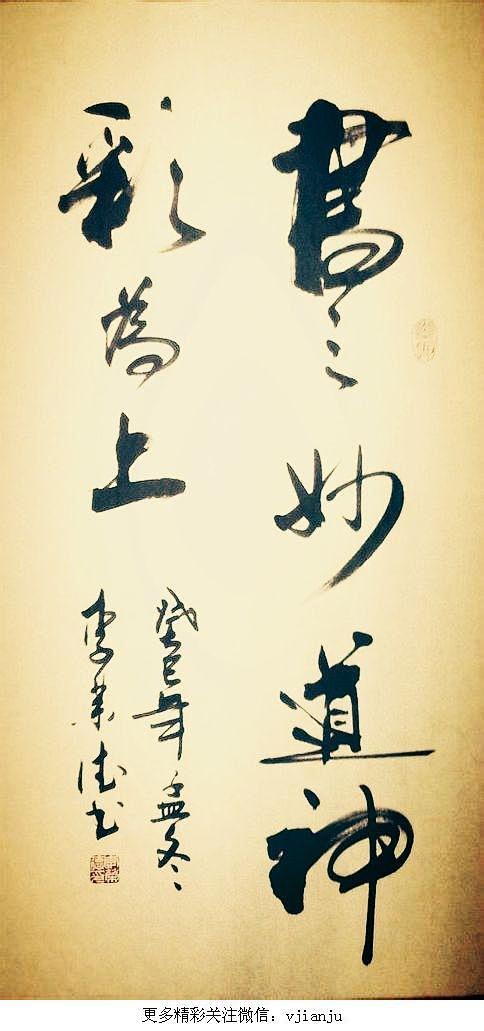 書之妙道神
彩為上
癸巳年孟冬
李業德书
更多精彩关注微信：vjianju